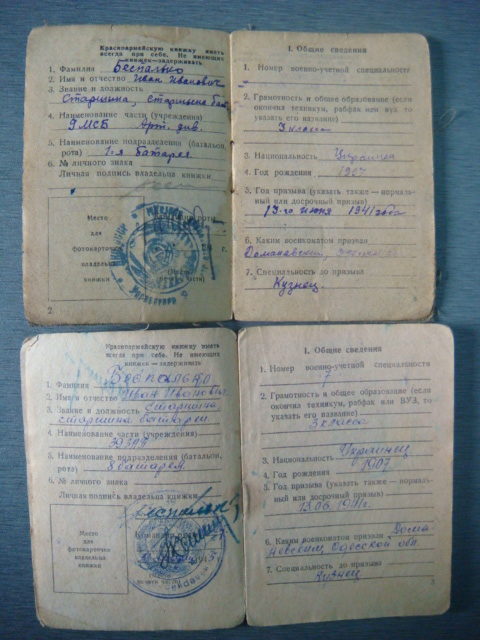 Красноармейскую книжку иметь
всегда при себе. Не имеющих
книжек—задерживать.
1. Фамилия Беспалько
2. Имя и отчество Иван Иванович
3. Звание и должность
Старшина, старшина бат.
4. Наименование части (учреждения)
Арт. див.
5. Наименование подразделения (батальон,
рота) 1-я батарея
6. № личного знака
Личная подпись владельца книжки
Место
для
фотокарточки
владельца
книжки
2
I. Общие сведения
1. Номер военно-учетной специальности
2. Грамотность и общее образование (если
окончил техникум, рабфак или вуз, то
указать его название)
3 класса
3. Национальность Украинец
4. Год рождения 1907
5. Год призыва (указать также — нормаль-
ный или досрочный призыв)
13-го июня 1941 года
6. Каким военкоматом призван
Доманевский,
7. Специальность до призыва
Кузнец.
Красноармейскую книжку иметь
всегда при себе. Не имеющих
книжек — задерживать.
1. Фамилия Беспалько
2. Имя и отчество Иван Иванович
3. Звание и должность старшина
старшина батареи
4. Наименование части (учреждения)
5. Наименование подразделения (батальон,
рота) батарея
6. № личного знака
Личная подпись владельца книжки
Беспалько
Место
для
фотокарточки
владельца
книжки
I. Общие сведения
1. Номер военно-учетной специальности
7
2. Грамотность и общее образование (если
окончил техникум, рабфак или ВУЗ, то
указать его название)
3 класса
3. Национальность Украинец
4. Год рождения 1907
5. Год призыва (указать также — нормаль-
ный или досрочный призыв)
13.06.1941г.
6. Каким военкоматом призван Дома-
невским Одесской обл.
7. Специальность до призыва
кузнец
3